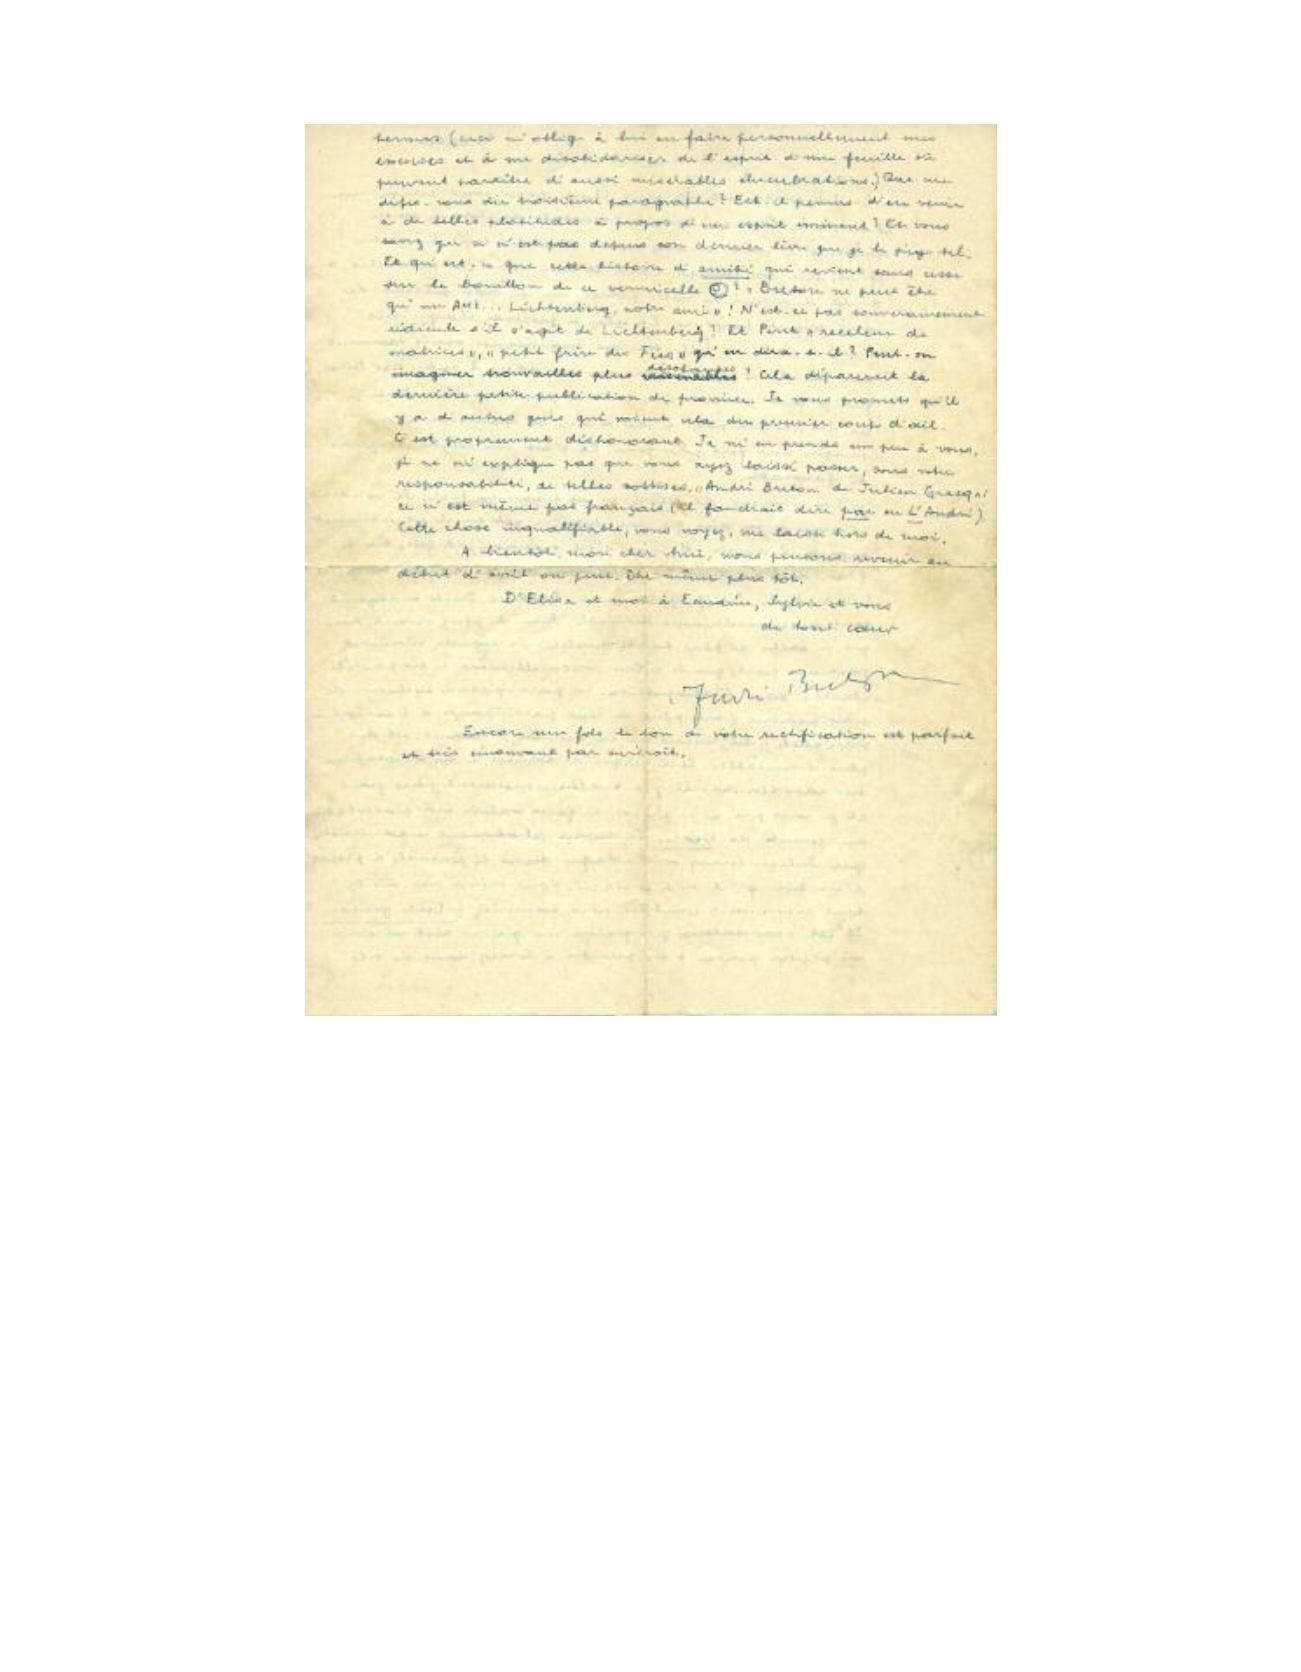 termes (ceci m'oblige à lui en faire personnellement mes
excuses et à me désolidariser de l'esprit d'une feuille où
peuvent paraître d'aussi misérables élucubrations.) Que me
dites-vous du troisième paragraphe? Est-il permis d'en venir
à de telles platitudes à propos d'un esprit éminent? Et vous
savez que ce n'est pas depuis son dernier livre que je le juge tel.
Et qu'est-ce que cette histoire d'amitié qui revient sans cesse
sur le bouillon de ce vermicelle ! « Breton ne peut être
qu'un Aut... Lichtenberg, notre ami » ! N'est-ce pas souverainement
ridicule s'il s'agit de Lichtenberg? Et Péret « receleur de
matrices », « petit frère des Fées » qu'en dira-t-il? Peut-on
imaginer trouvailles plus désolantes ! Cela déparerait la
dernière petite publication de province. Je vous promets qu'il
y a d'autres gens qui voient cela du premier coup d'œil.
C'est proprement déshonorant. Je m'en prends un peu à vous,
je ne m'explique pas que vous ayez laissé passer, sous votre
responsabilité, de telles sottises. « André Breton de Julien Gracq »:
ce n'est même pas français (il faudrait dire par ou L'André).
Cette chose inqualifiable, vous voyez, me laisse hors de moi.
A bientôt, mon cher ami, nous pensons revenir au
début d'avril ou peut-être même plus tôt.
D'Elisa et moi à Sylvie et vous
de tout cœur
André Breton
Encore une fois le ton de votre rectification est parfait
et très émouvant par surcroît.